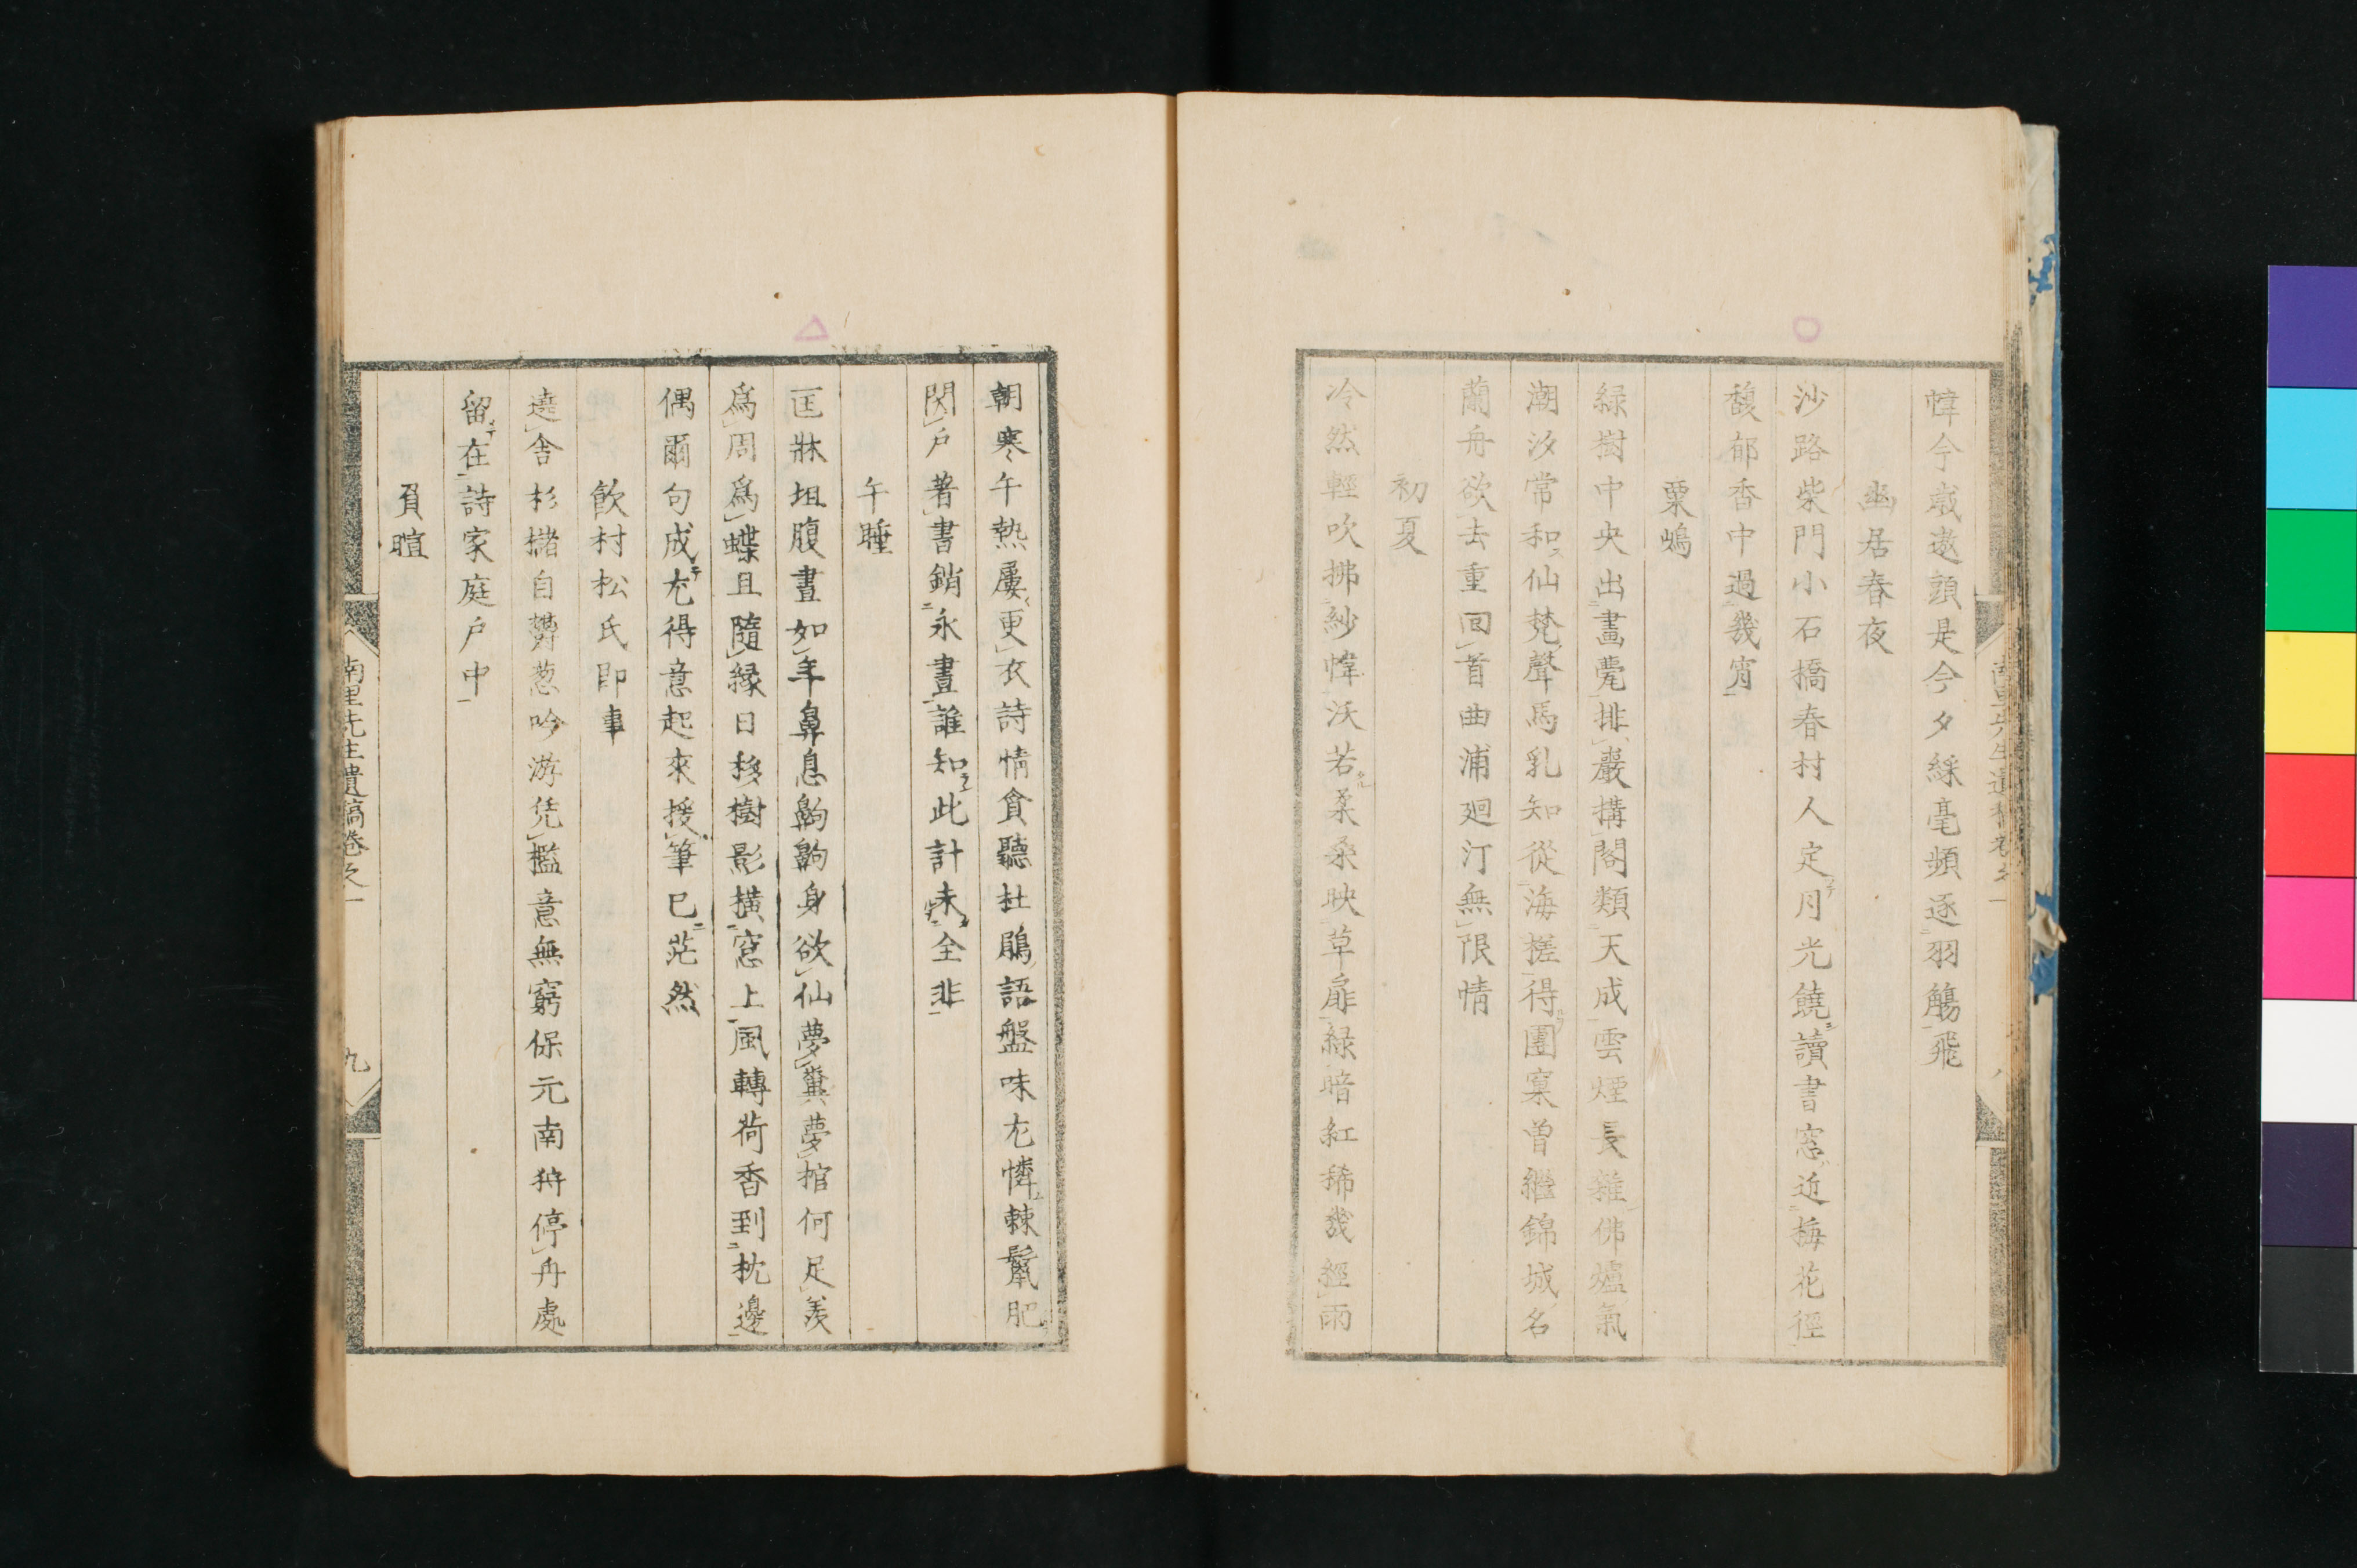 幃今戒遨頭是今夕綵毫頻逐羽觴飛
幽居春夜
沙路柴門小石橋春村人定月光饒讀書窓近梅花徑
馥郁香中過幾宵
粟嶋
緑樹中央出畵甍排巖搆閣類天成雲煙長雜佛爐氣
潮汐常和仙梵聲馬乳知從海槎得團窠曽繼錦城名
蘭舟欲去重回首曲浦廻汀無限情
初夏
冷然輕吹拂紗幃沃若柔桑映草扉緑暗紅稀幾經雨
朝寒午熱屢更衣詩情貪聽杜鵑語盤味尤憐棘鬣肥
閉戸著書銷永晝誰知此計未全非
午睡
匡牀坦腹晝如年鼻息齁齁身欲仙夢糞夢棺何足羨
為周為蝶且隨縁日移樹影橫窓上風轉荷香到枕邊
偶爾句成尤得意起來援筆已茫然
飲村松氏即事
遶舎杉櫧自鬱葱吟游凭檻意無窮保元南狩停舟處
留在詩家庭戸中
負暄
南里先生遺稿卷之一
九